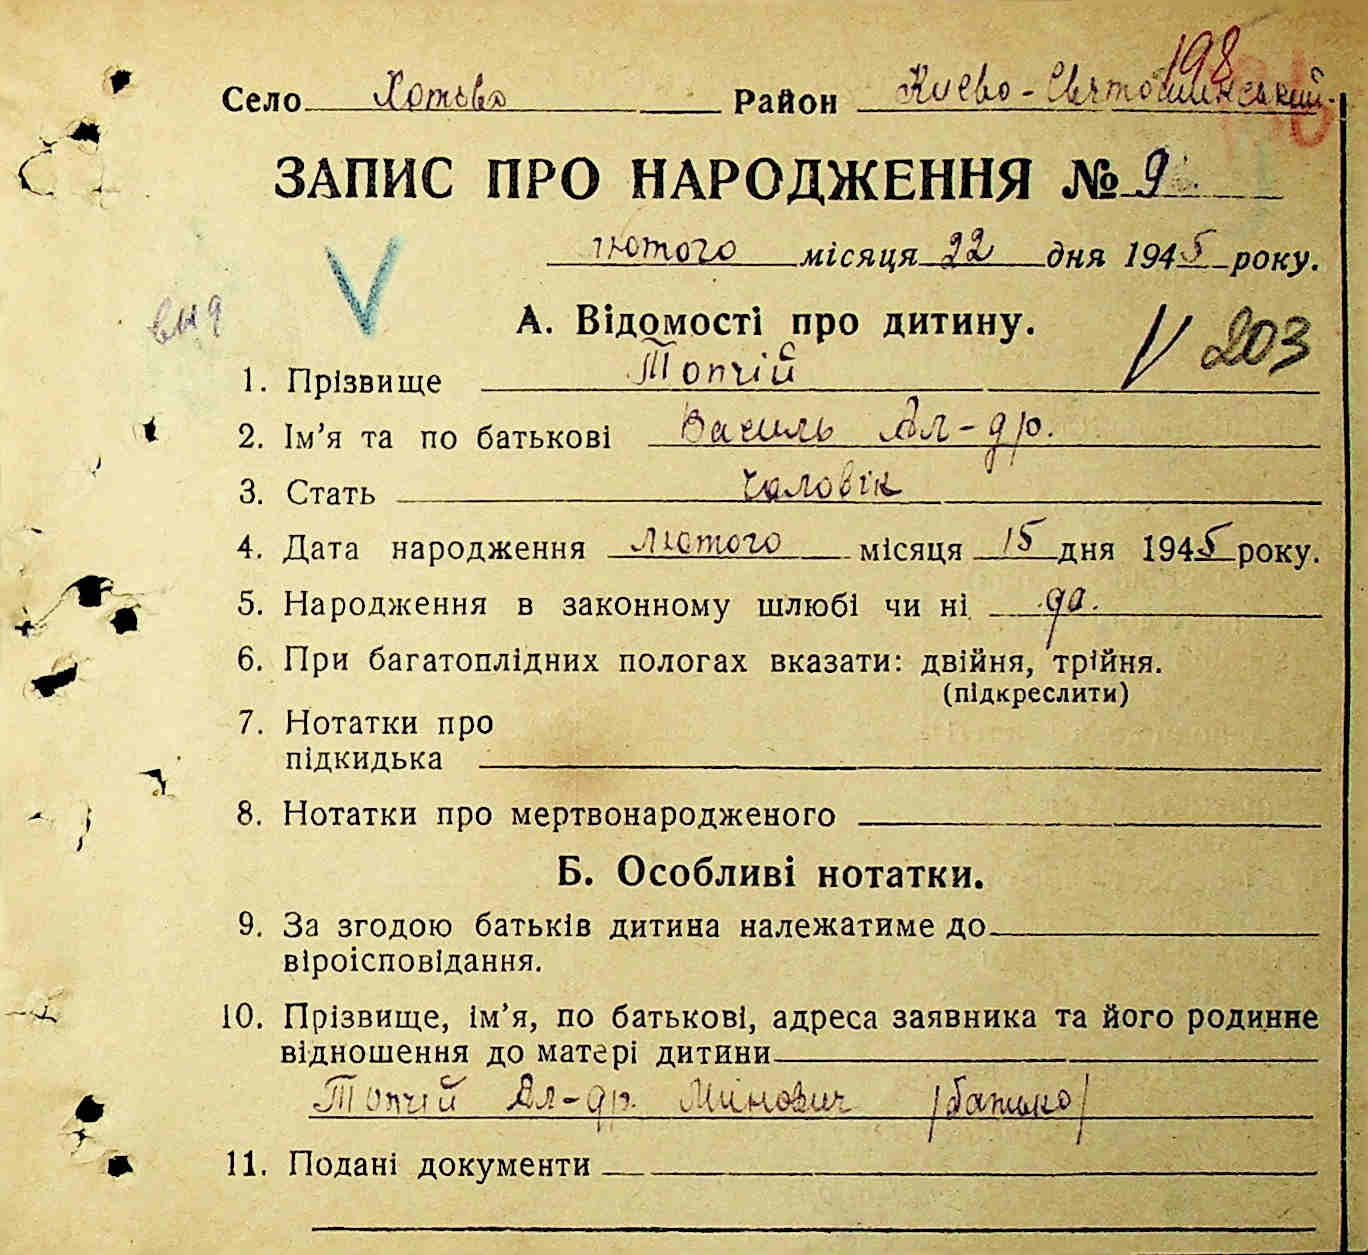 198
Село Хотьво Район Києво-Святошинський
ЗАПИС ПРО НАРОДЖЕННЯ № 9
лютого місяця 22 дня 1945 року.
А. Відомості про дитину.
203
1. Прізвище Топчій
2. Ім’я та по батькові Василь Ал-др.
3. Стать чоловік
4. Дата народження лютого місяця 15 дня 1945 року.
5. Народження в законному шлюбі чи ні да.
6. При багатоплідних пологах вказати: двійня, трійня.
(підкреслити)
7. Нотатки про
підкидька
8. Нотатки про мертвонародженого
Б. Особливі нотатки.
9. За згодою батьків дитина належатиме до
віроісповідання.
10. Прізвище, ім’я, по батькові, адреса заявника та його родинне
відношення до матері дитини
Топчій Ал-др. Мінович /батько/
11. Подані документи